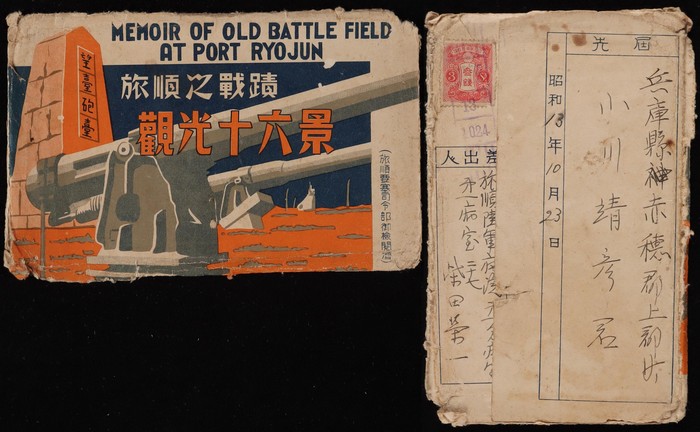 MEMOIR OF OLD BATTLE FIELD
AT PORT RYOJUN
旅順之戰蹟
觀光十六景
望臺砲臺
(旅順要塞司令部御檢閱濟)
届先
兵庫縣赤穗郡上郡町
小川靖彦君
昭和13年10月23日
差出人
旅順陸軍病院
病室
柴田榮一
3 3